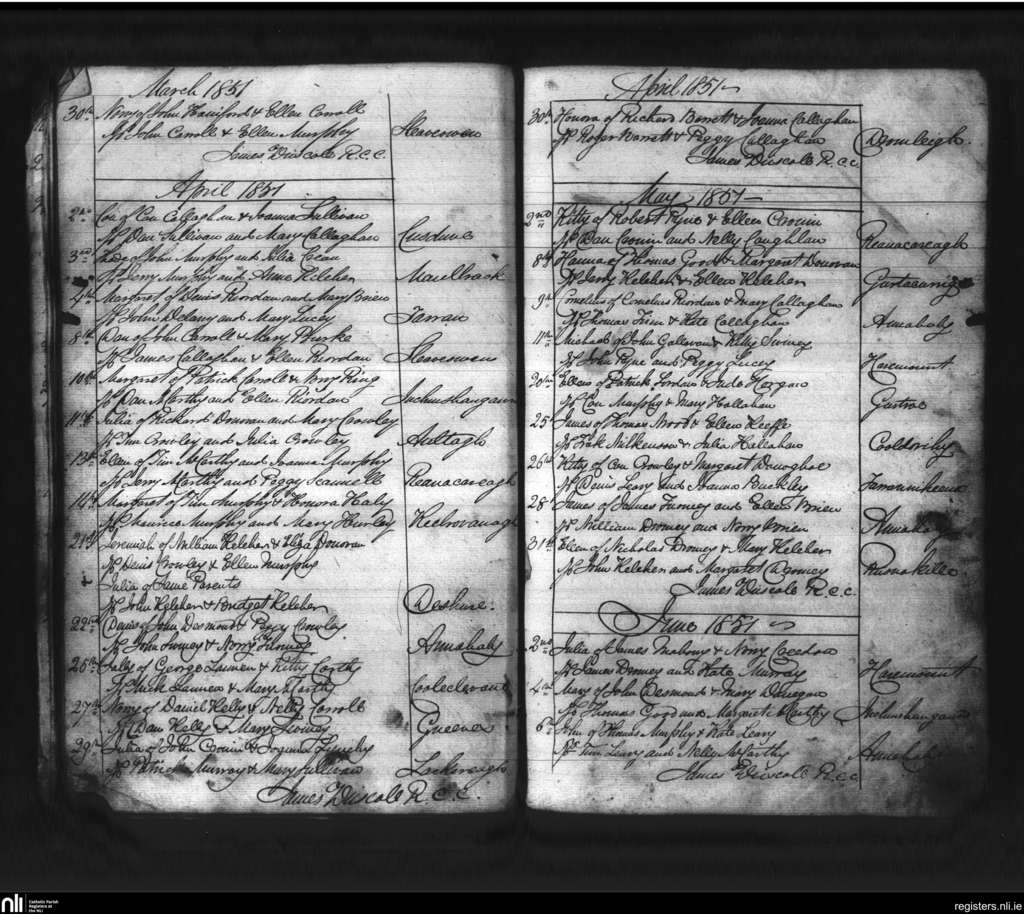 March 1851
30th Nory of John Haniford & Ellen Carroll
Sps John Carroll & Ellen Murphy Sleaveowen
James Driscole R.C.C.
April 1851
2nd Con of Con Callaghan & Joanna Sullivan
Sps Dan Sullivan and Mary Callaghan Cusduve
3rd of John Murphy and Julia
Sps Jerry Murphy and Anne Keleher
4th Margaret of Denis Riordan and Mary Brien
Sps John Delany and Mary Lucey
8th Dan of John Carroll & Mary
Sps James Callaghan & Ellen Riordan Sleaveowen
10th Margaret of Patrick Carroll & Nory Ring
Sps Dan McCarthy and Ellen Riordan
11th Julia of Richard Donovan and Mary Crowley
Sps Tim Crowley and Julia Crowley Aultagh
13th Ellen of Tim McCarthy and Joanna Murphy
Sps Jerry McCarthy and Peggy Scannell Reanacareagh
14th Margaret of Tim Murphy & Honora Healy
Sps Maurice Murphy and Mary Hurley
21st Jeremiah of William Kelehen & Eliza Donovan
Sps Denis Crowley & Ellen Murphy
& Julia of Same Parents
Sps John Kelehen & Bridget Kelehen Deshure
22nd Denis of John Desmond & Peggy Crowley
Sps John Twomey & Nory Annahaly
26th of George & Kitty Carthy
Sps Mick & Mary Carthy
27th Nory of Daniel Kelly & Nelly Carroll
Sps Dan Kelly & Mary Twomey
29th Julia of John Cronin & Lynchy
Sps Patrick Murray & Mary Sullivan Lackareagh
James Driscole R.C.C.
April 1851
30th Honora of Richard Barrett & Joanna Callaghan
Sps Roger Barrett & Peggy Callaghan Dromleigh.
James Driscole R.C.C
May 1851
2nd Kitty of Robert Ryne & Ellen Cronin
Sps Dan Cronin and Nelly Coughlan Reanacareagh
8th Hanna of Thomas Good & Margaret Donovan
Sps Jerry Kelehen & Ellen Kelehen
9th Cornelius of Cornelius Riordan & Mary Callaghan
Sps Thomas and Kate Callaghan Annahaly
11th Michael of John Galvin & Kitty Twomey
Sps John Ryne and Peggy Lucey Haremount
20th Ellen of Patrick Jordan & Jude Horgan
Sps Con Murphy & Mary Hallahan
25 James of Thomas Wood & Ellen Keeffe
Sps Wilkenson & Julia Hallahan
26th Kitty of Con Crowley & Margaret Donoghoe
Sps Denis Leary and Joanna Buckley
28 James of James Twomey and Ellen Brien
Sps William Dromey and Nory Brien Annahaly
31st Ellen of Nicholas Dromey & Mary Kelehen
Sps John Kelehen and Margaret Dromey
James Driscole R.C.C.
June 1851
2nd Julia of James Mahony & Nory
Sps James Dromey and Kate Murray Haremount
4th Mary of John Desmond & Mary Dinegan
Sps Thomas Good and Margaret McCarthy
6th John of Thomas Murphy & Kate Leary
Sps Tim Leary and Nelly McCarthy Annahaly
James Driscole R.C.C
nli Catholic Parish Registers at the NLI
registers.nli.ie